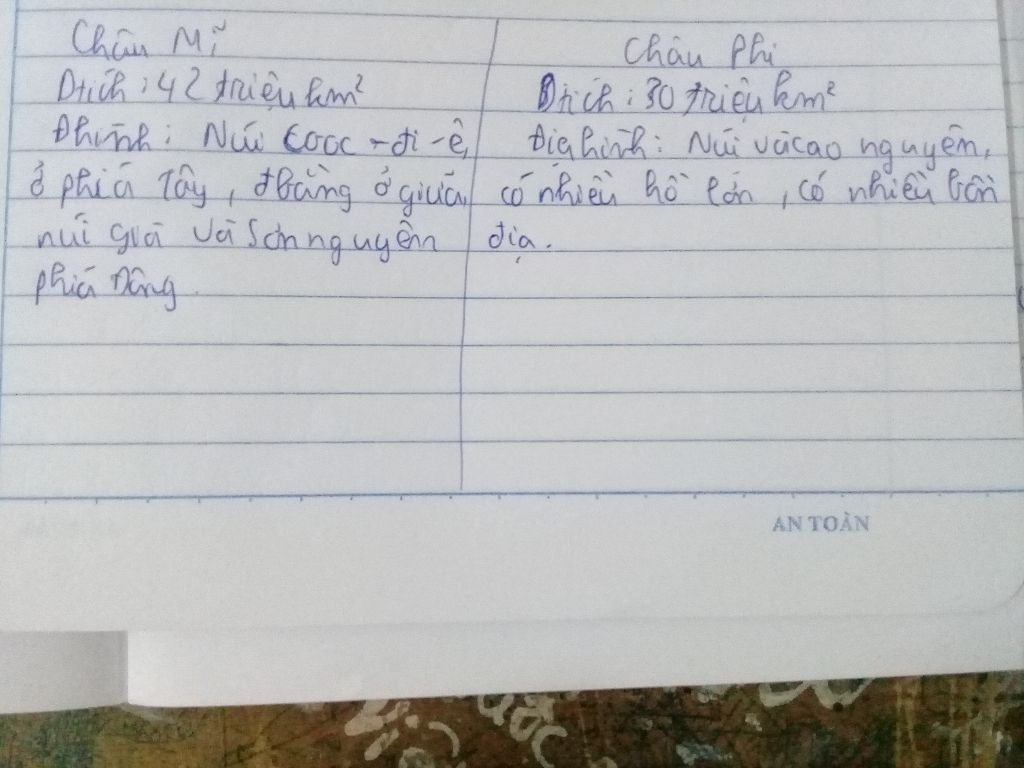 Châu Mĩ
Dtích : 42 triệu km²
Đhình : Núi Cooc-đi-e,
ở phía Tây, đbằng ở giữa,
núi già và Sơn nguyên
phía Đông.
Châu Phi
Dtích : 30 triệu km²
Địa hình : Núi và cao nguyên,
có nhiều hồ lớn, có nhiều bồn
địa.
AN TOÀN